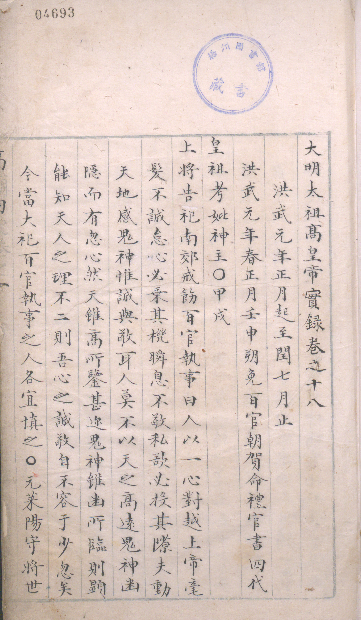 04693
大明太祖髙皇帝實録卷之十八
洪武元年正月起至閏七月止
洪武元年春正月壬申朔免百官朝賀命禮官書四代
皇祖考妣神主○甲戌
上将告祀南郊戒飭百官執事曰人以一心對越上帝毫
髮不誠怠心必乗其機瞬息不敬私欲必投其隙夫動
天地感鬼神惟誠與敬耳人莫不以天之髙逺鬼神幽
隠而有忽心然天雖髙所鑒甚迩鬼神雖幽所臨則顯
能知天人之理不二則吾心之誠敬自不容于少忽矣
今當大祀百官執事之人各宜慎之○元萊陽守將世